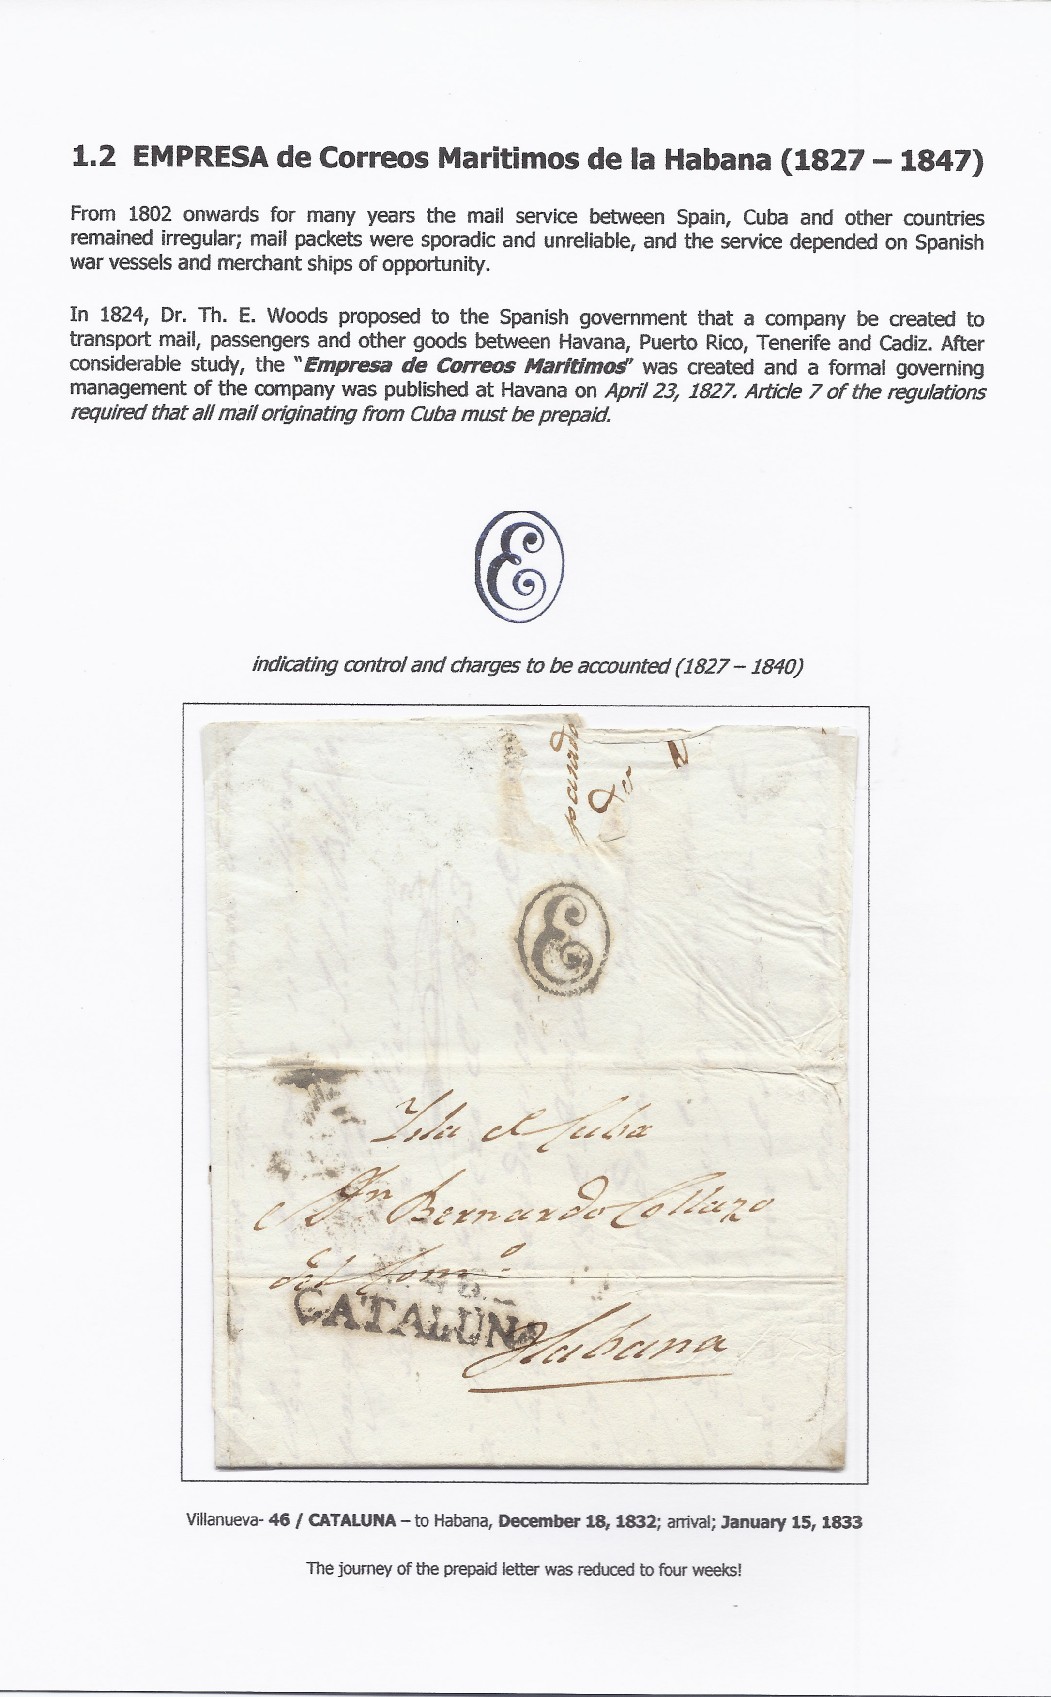 1.2 EMPRESA de Correos Maritimos de la Habana (1827 – 1847)
From 1802 onwards for many years the mail service between Spain, Cuba and other countries
remained irregular; mail packets were sporadic and unreliable, and the service depended on Spanish
war vessels and merchant ships of opportunity.
In 1824, Dr. Th. E. Woods proposed to the Spanish government that a company be created to
transport mail, passengers and other goods between Havana, Puerto Rico, Tenerife and Cadiz. After
considerable study, the "Empresa de Correos Maritimos" was created and a formal governing
management of the company was published at Havana on April 23, 1827. Article 7 of the regulations
required that all mail originating from Cuba must be prepaid.
E
indicating control and charges to be accounted (1827 – 1840)
E
Isla de Cuba
Dn Bernardo Collazo
del Comº
CATALUNA
Habana
Villanueva- 46 / CATALUNA – to Habana, December 18, 1832; arrival; January 15, 1833
The journey of the prepaid letter was reduced to four weeks!